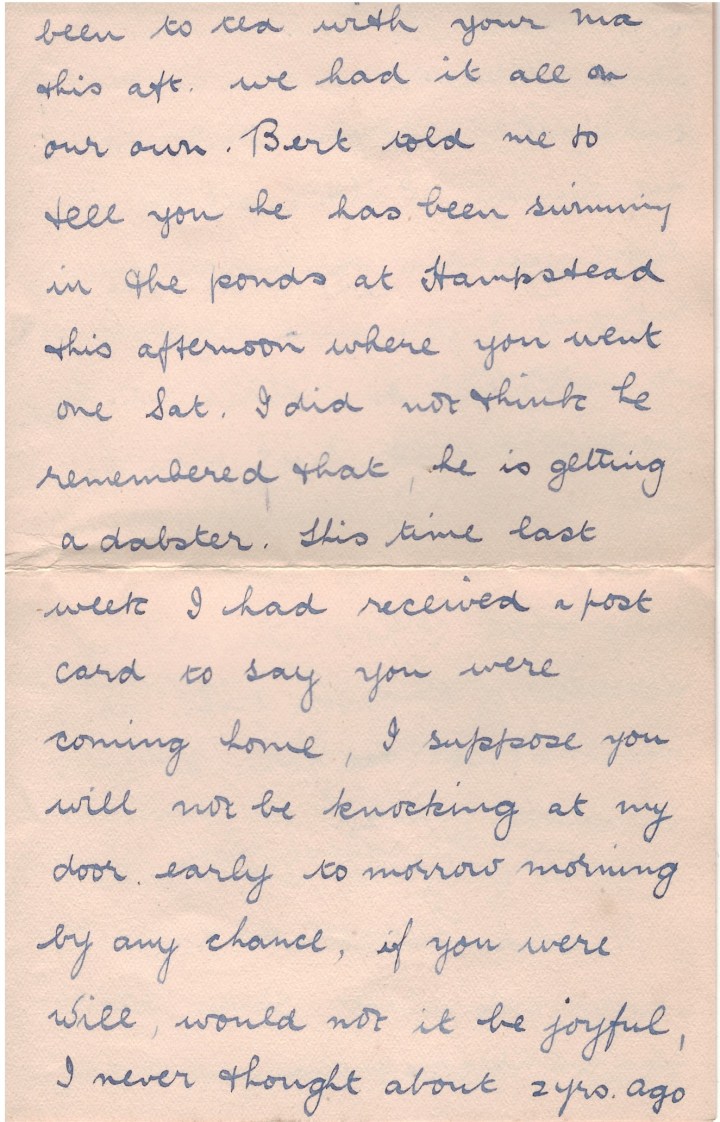 been to tea with your ma
this aft. we had it all on
our own. Bert told me to
tell you he has been swimming
in the ponds at Hampstead
this afternoon where you went
one Sat. I did not think he
remembered that, he is getting
a dabster. This time last
week I had received a post
card to say you were
coming home, I suppose you
will not be knocking at my
door. early to morrow morning
by any chance, if you were
will, would not it be joyful,
I never thought about 2 yrs. ago